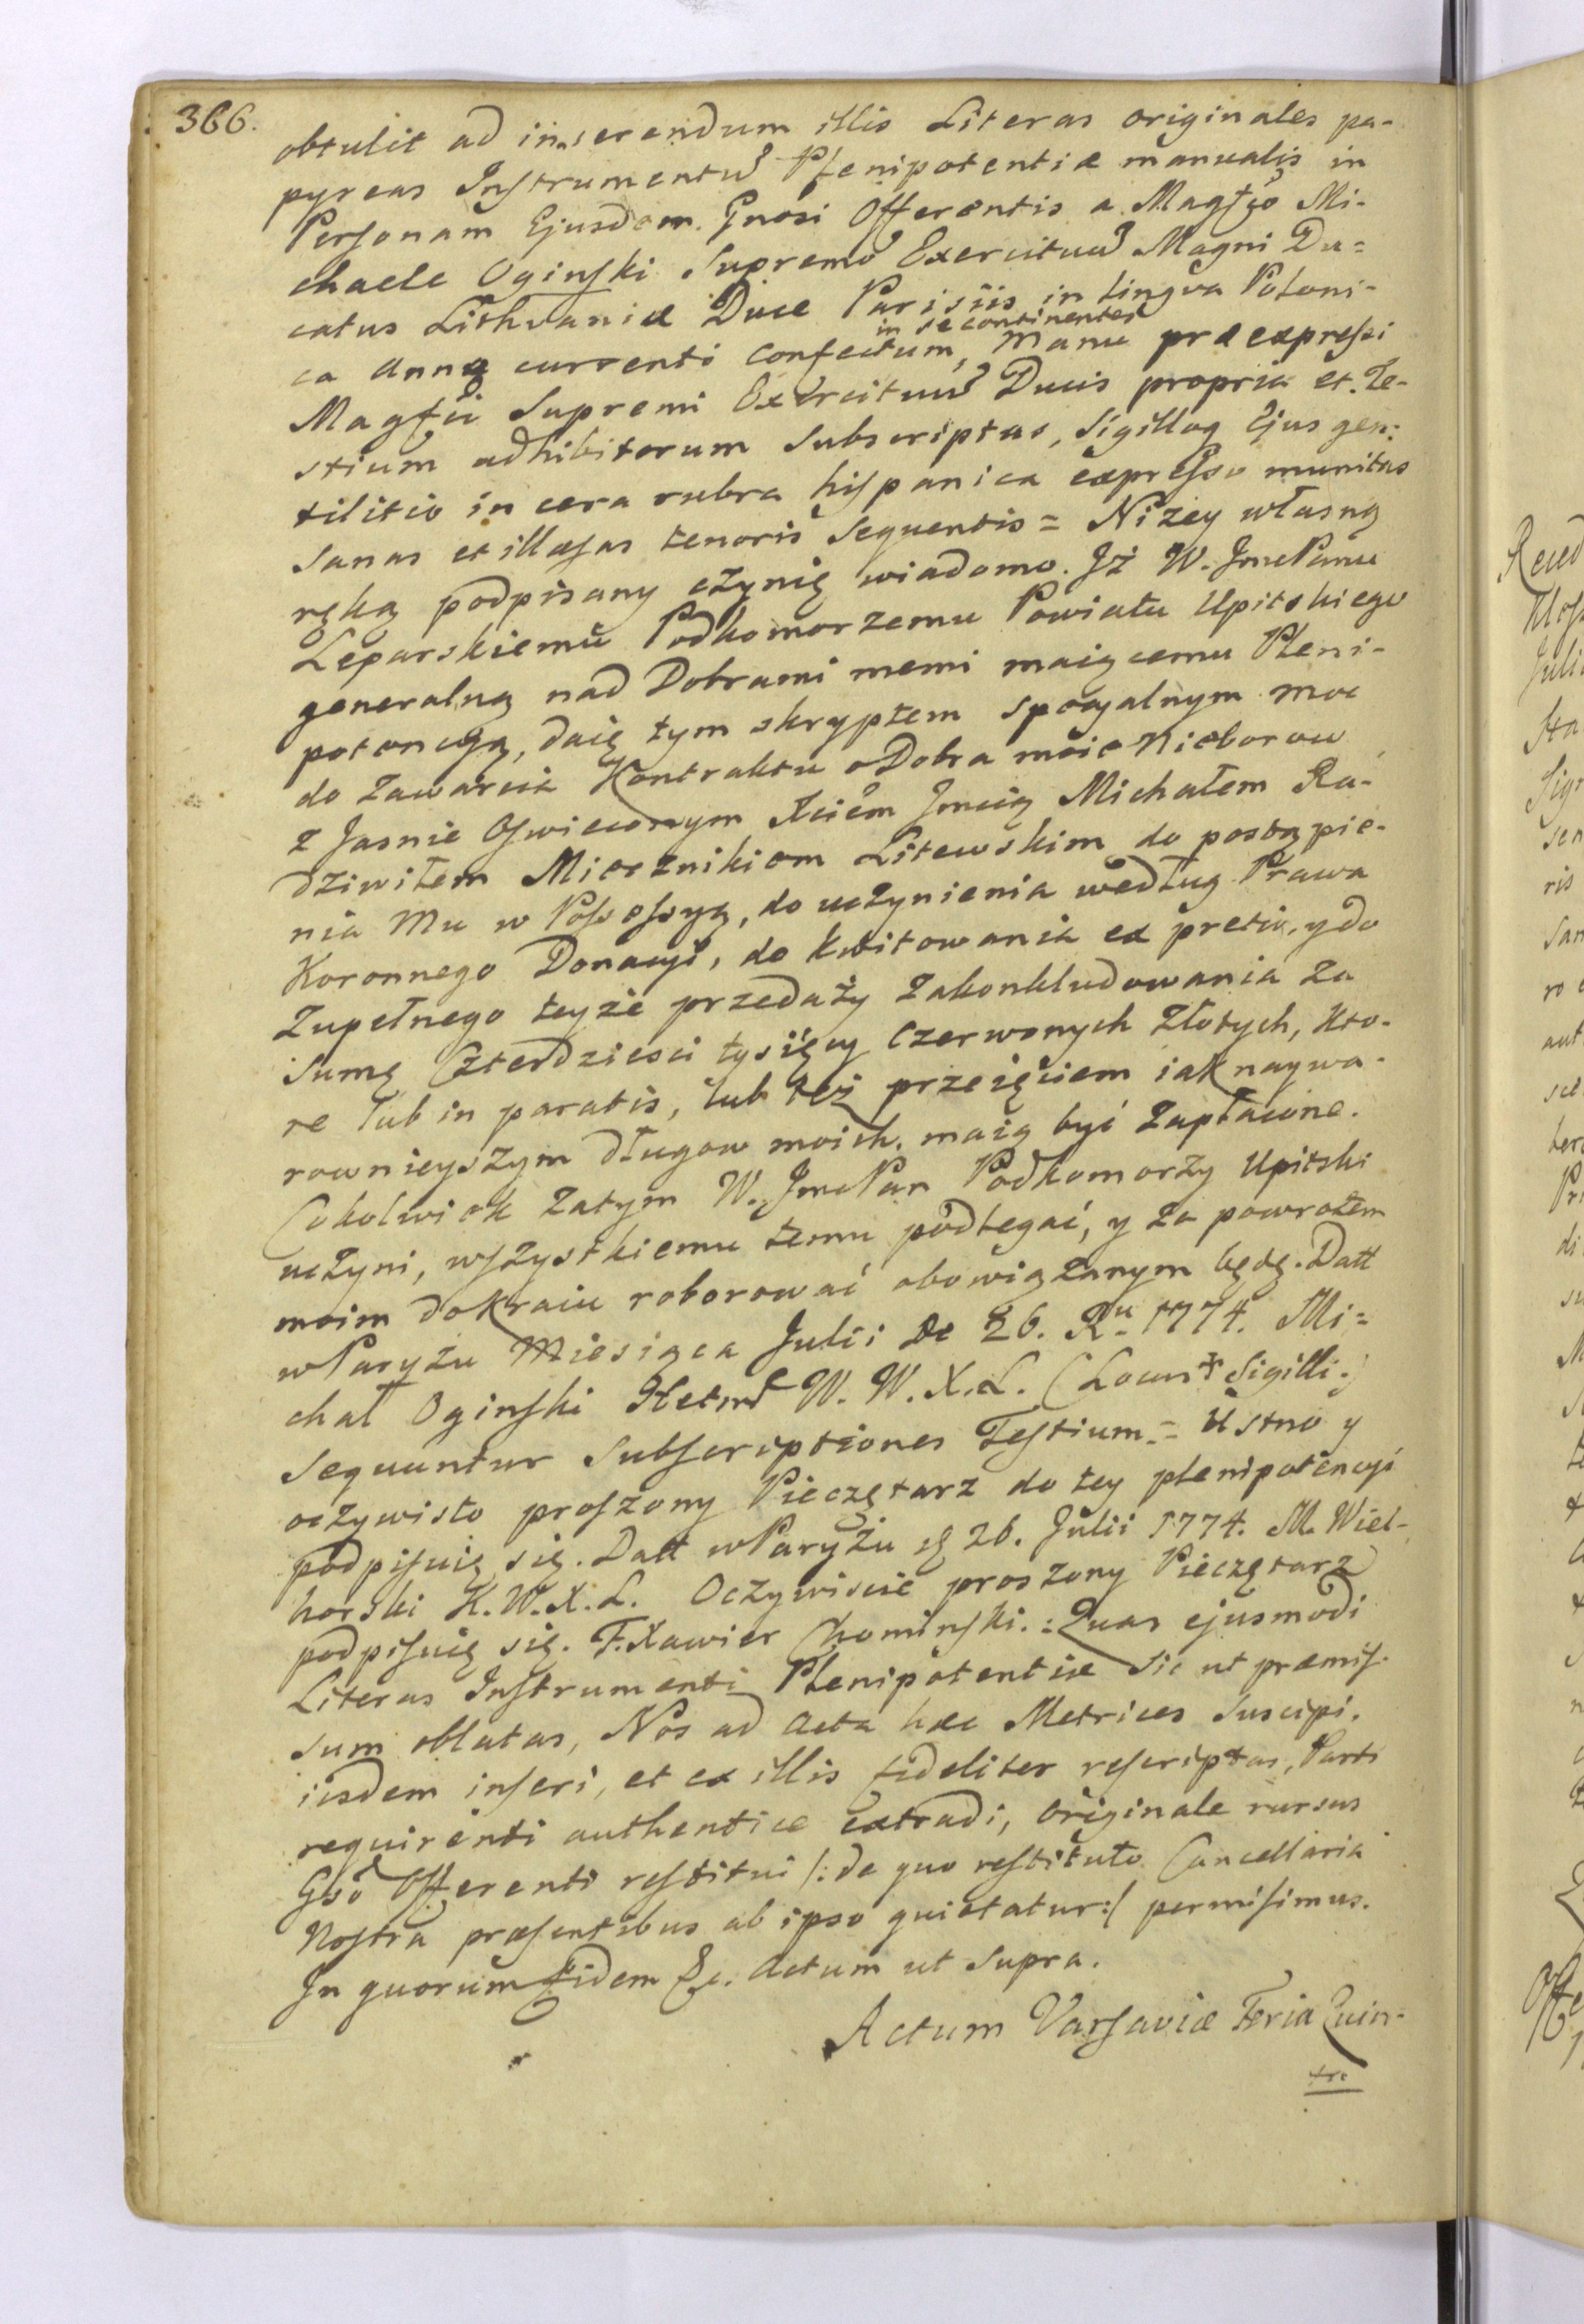 366.
obtulit ad inserendum illis Literas originales pa-
pyreas Instrumentū Plenipotentiæ manualis in
Personam Ejusdem Gnosi Offerentis a Magfco Mi-
chaele Oginski Supremo Exercituū Magni Du=
catus Lithvaniæ Duce Parisiis in lingva Poloni-
in se continentes
ca Anno currenti confectum, Manu præexpressi
Magfci Supremi Exercituū Ducis propria et Te-
stium adhibitorum subscriptas, Sigilloq Ejus gen-
tilitio in cera rubra hispanica expresso munitas
sanas et illæsas tenoris sequentis = Niżey własną
ręką podpisany czynię wiadomo. Iż W. JmcPanu
Leparskiemu Podkomorzemu Powiatu Upitskiego
generalną nad Dobrami memi maiącemu Pleni-
potencyą, daię tym skryptem specyalnym moc
do zawarcia Kontraktu o Dobra moie Nieborow
z Jasnie Oswieconym Xciem Jmcią Michałem Ra-
dziwiłem Miecznikiem Litewskim do postąpie-
nia Mu w Possessyą, do uczynienia według Prawa
Koronnego Donacyi, do kwitowania ex pretio, y do
zupełnego teyże przedaży zakonkludowania za
Sumę Czterdziesci tysięcy Czerwonych Złotych, kto-
re lub in paratis, lub też przeięciem iak naywa-
rownieyszym długow moich, maią być zapłacone.
Cokolwiek zatym W. JmcPan Podkomorzy Upitski
uczyni, wszystkiemu temu podlegać, y za powrotem
moim do Kraiu roborować obowiązanym będę. Datt
w Paryżu Miesiąca Julii De 26. Ru 1774. Mi=
chał Oginski Hetm W. W. X. L. (Locus * Sigilli.)
Sequuntur Subscriptiones Testium = Ustno y
oczywisto proszony Pieczętarz do tey plenipotencyi
podpisuię się. Datt w Paryżu d 26. Julii 1774. M. Wiel-
horski K. W. X. L. Oczywiscie proszony Pieczętarz
podpisuię się. F. Xawier Chominski. = Quas ejusmodi
Literas Instrumenti Plenipotentiæ sic ut præmis-
sum oblatas, Nos ad Acta hæc Metrices suscipi,
iisdem inseri, et ex illis fideliter rescriptas, Parti
requirenti authentice extradi, originale rursus
Gso Offerenti restitui /: de quo restituto Cancellaria
Nostra præsentibus ab ipso quietatur :/ permisimus.
In quorum Fidem &c. Actum ut supra.
Actum Varsaviæ Feria Quin-
ta